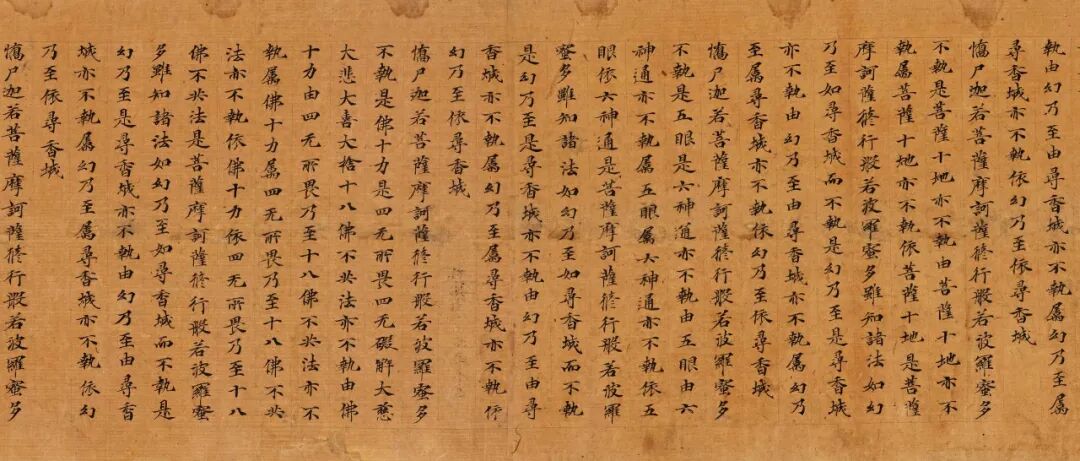 執由幻乃至由尋香城亦不執屬幻乃至屬
尋香城亦不執依幻乃至依尋香城
憍尸迦若菩薩摩訶薩修行般若波羅蜜多
不執是菩薩十地亦不執由菩薩十地亦不
執屬菩薩十地亦不執依菩薩十地是菩薩
摩訶薩修行般若波羅蜜多雖知諸法如幻
乃至如尋香城而不執是幻乃至是尋香城
亦不執由幻乃至由尋香城亦不執屬幻乃
至屬尋香城亦不執依幻乃至依尋香城
憍尸迦若菩薩摩訶薩修行般若波羅蜜多
不執是五眼是六神通亦不執由五眼由六
神通亦不執屬五眼屬六神通亦不執依五
眼依六神通是菩薩摩訶薩修行般若波羅
蜜多雖知諸法如幻乃至如尋香城而不執
是幻乃至是尋香城亦不執由幻乃至由尋
香城亦不執屬幻乃至屬尋香城亦不執依
幻乃至依尋香城
憍尸迦若菩薩摩訶薩修行般若波羅蜜多
不執是佛十力是四无所畏四无礙解大慈
大悲大喜大捨十八佛不共法亦不執由佛
十力由四无所畏乃至十八佛不共法亦不
執屬佛十力屬四无所畏乃至十八佛不共
法亦不執依佛十力依四无所畏乃至十八
佛不共法是菩薩摩訶薩修行般若波羅蜜
多雖知諸法如幻乃至如尋香城而不執是
幻乃至是尋香城亦不執由幻乃至由尋香
城亦不執屬幻乃至屬尋香城亦不執依幻
乃至依尋香城
憍尸迦若菩薩摩訶薩修行般若波羅蜜多